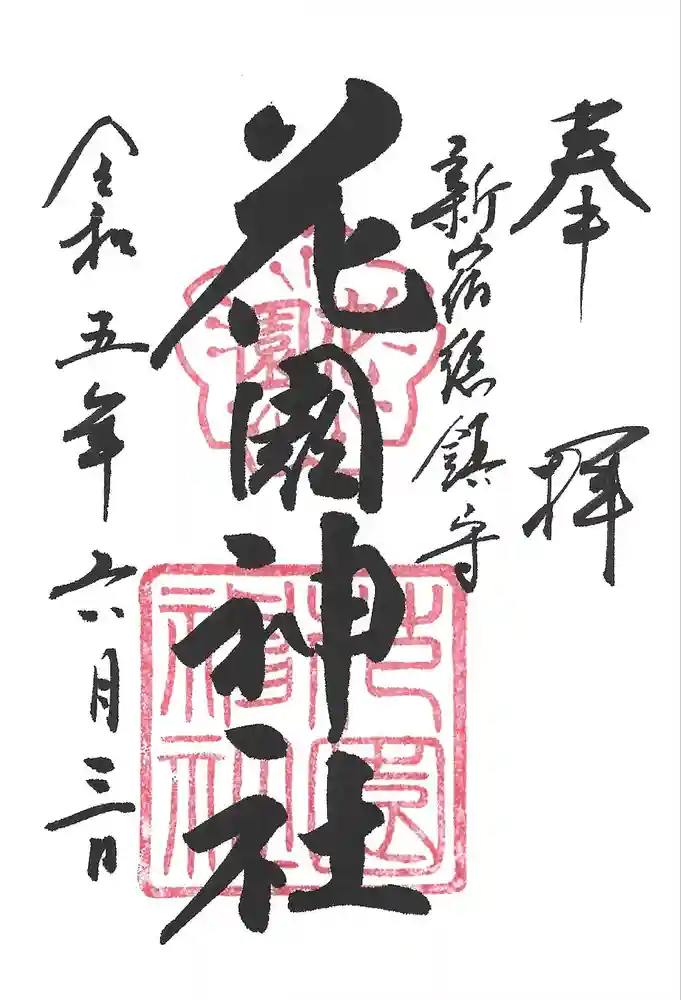 奉拝
新宿總鎮守
花園神社
令和五年六月三日
花園
花園神社